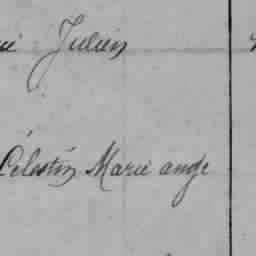 Julien
Célestin Marie ange